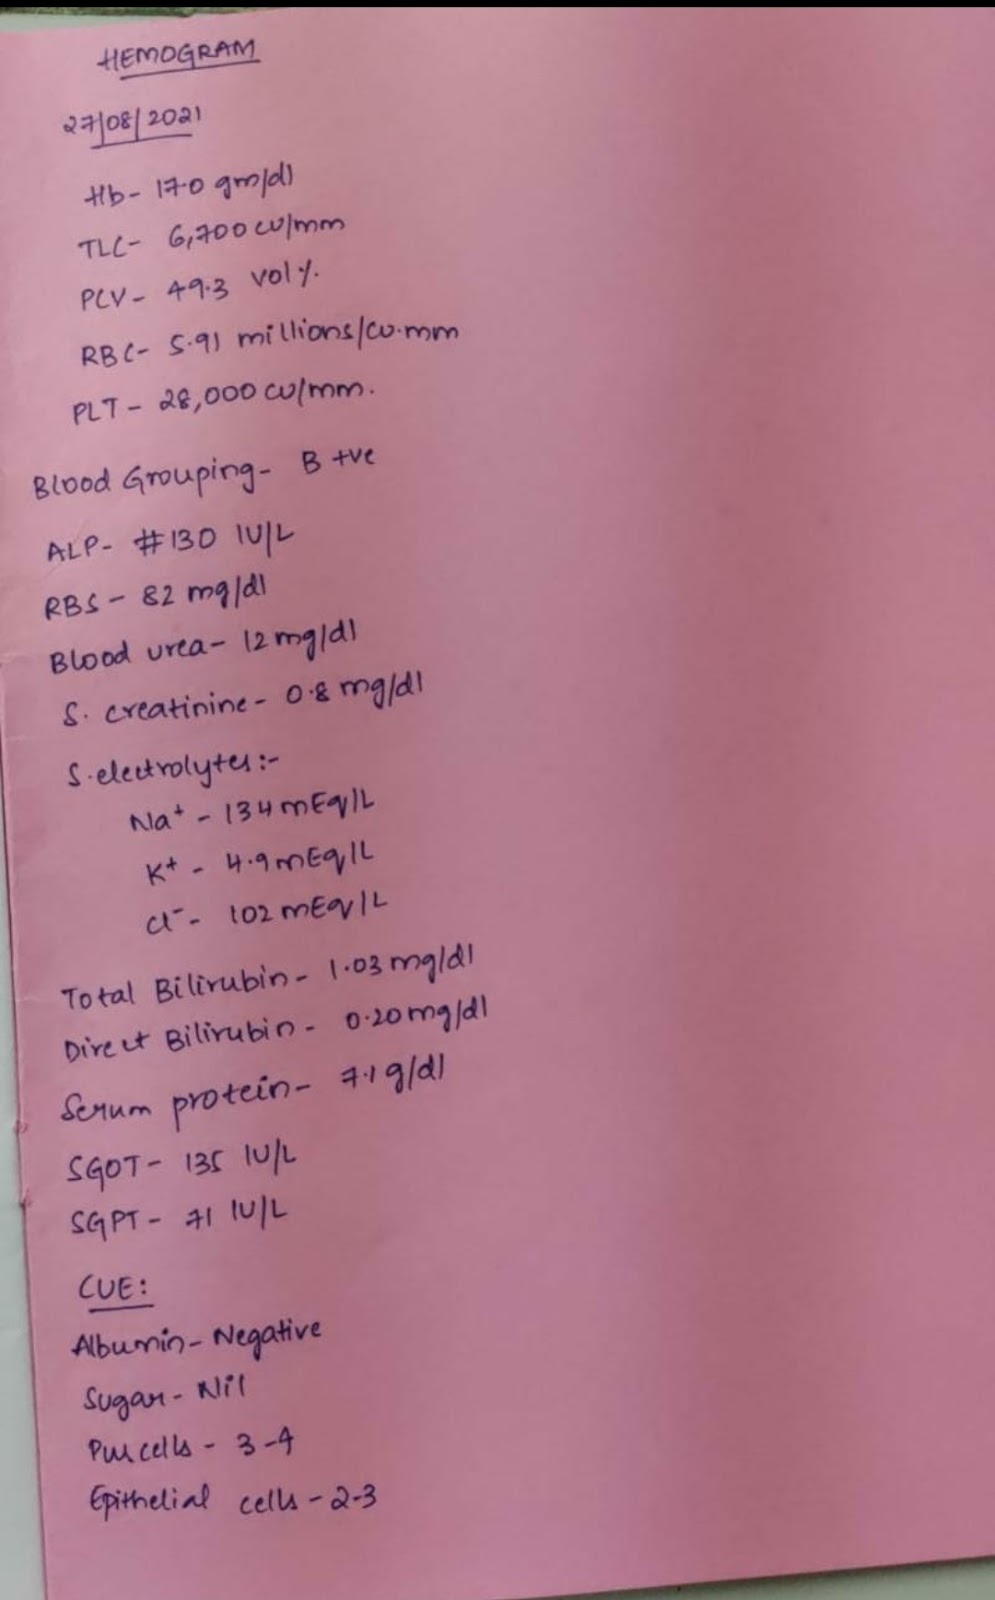 HEMOGRAM
27/08/2021
Hb- 17.0 gm/dl
TLC- 6,700 cu/mm
PCV- 49.3 vol%.
RBC- 5.91 millions/cu.mm
PLT- 28,000 cu/mm.
Blood Grouping- B +ve
ALP- #130 IU/L
RBS- 82 mg/dl
Blood urea- 12 mg/dl
S. creatinine- 0.8 mg/dl
S.electrolytes:-
Na+ - 134 mEq/L
K+ - 4.9 mEq/L
Cl- - 102 mEq/L
Total Bilirubin- 1.03 mg/dl
Direct Bilirubin- 0.20 mg/dl
Serum protein- 7.1 g/dl
SGOT- 135 IU/L
SGPT- 71 IU/L
CUE:
Albumin- Negative
Sugar- Nil
Pus cells - 3-4
Epithelial cells - 2-3